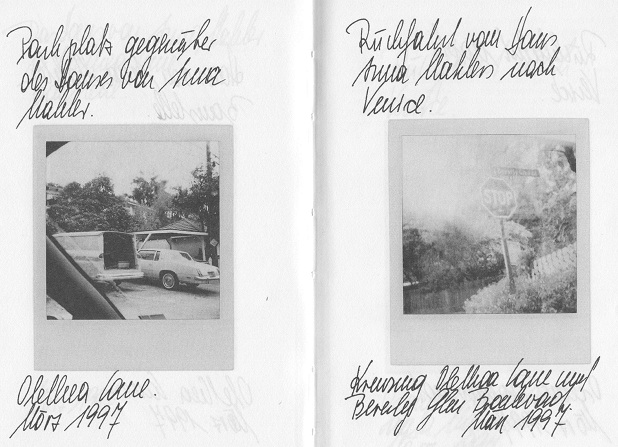 Parkplatz gegenüber
des Hauses von Anna
Mahler.
Oletha Lane.
März 1997
Rückfahrt vom Haus
Anna Mahlers nach
Venice.
Kreuzung Oletha Lane und
Beverly Glen Boulevard.
März 1997.